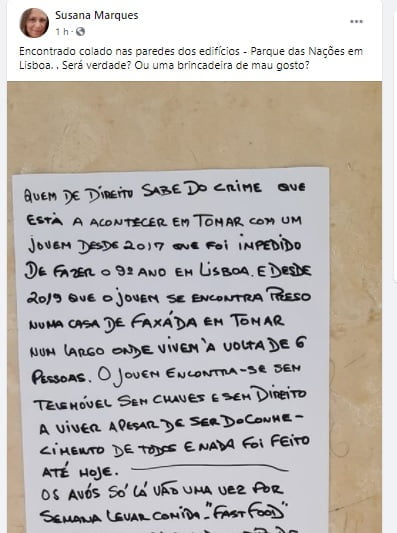 Susana Marques
1 h ·
Encontrado colado nas paredes dos edifícios - Parque das Nações em
Lisboa. . Será verdade? Ou uma brincadeira de mau gosto?
QUEM DE DIREITO SABE DO CRIME QUE
ESTÁ A ACONTECER EM TOMAR COM UM
JOVEM DESDE 2017 QUE FOI IMPEDIDO
DE FAZER O 9º ANO EM LISBOA. E DESDE
2019 QUE O JOVEM SE ENCONTRA PRESO
NUMA CASA DE FAXÁDA EM TOMAR
NUM LARGO ONDE VIVEM À VOLTA DE 6
PESSOAS. O JOVEM ENCONTRA-SE SEM
TELEMÓVEL SEM CHAVES E SEM DIREITO
A VIVER APESAR DE SER DO CONHE-
CIMENTO DE TODOS E NADA FOI FEITO
ATÉ HOJE.
OS AVÓS SÓ LÁ VÃO UMA VEZ POR
SEMANA LEVAR COMIDA "FAST FOOD"